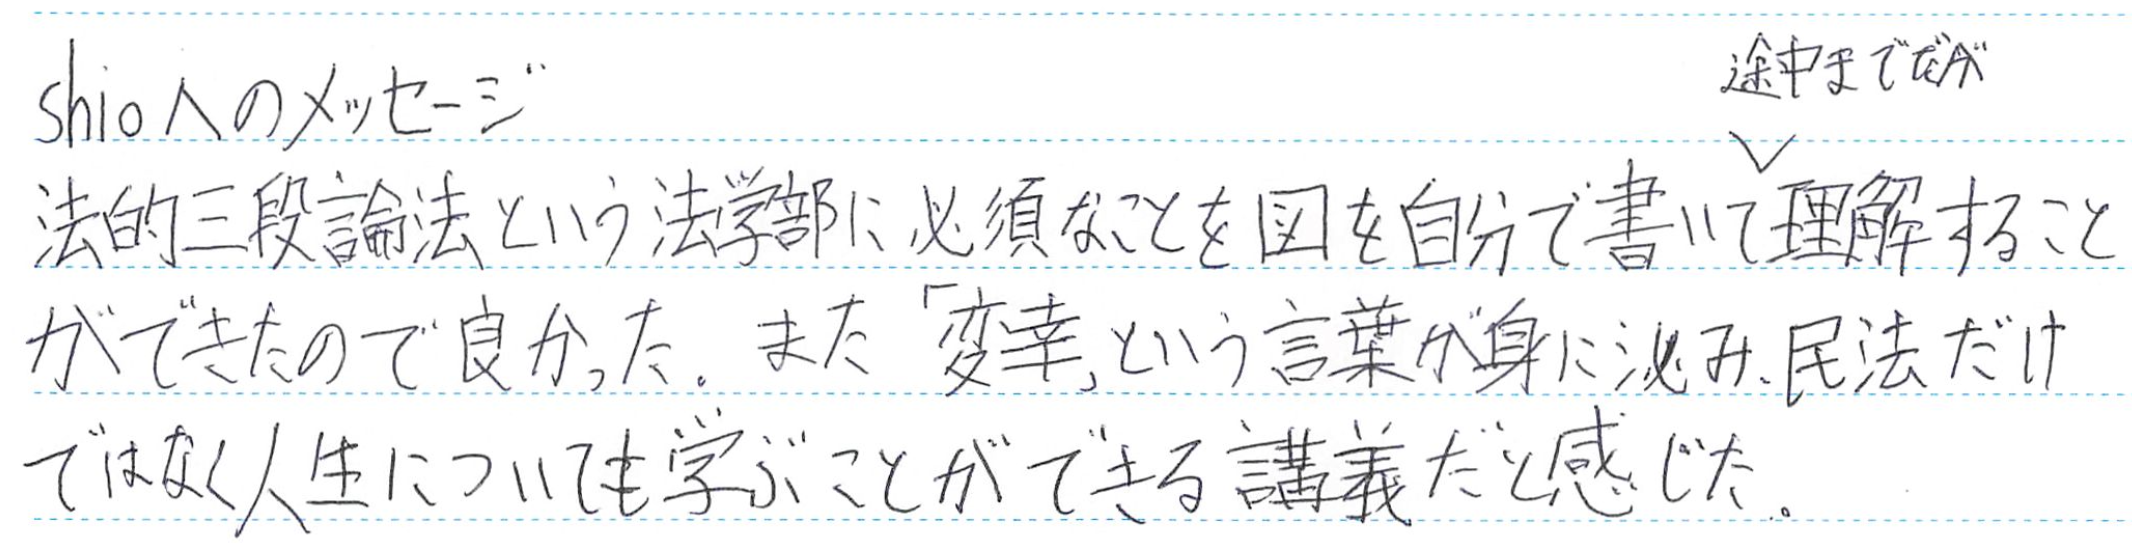 shioへのメッセージ
途中までだが
法的三段論法という法学部に必須なことを図を自分で書いて理解すること
ができたので良かった。また「変幸」という言葉が身に泌み、民法だけ
ではなく人生についても学ぶことができる講義だと感じた。